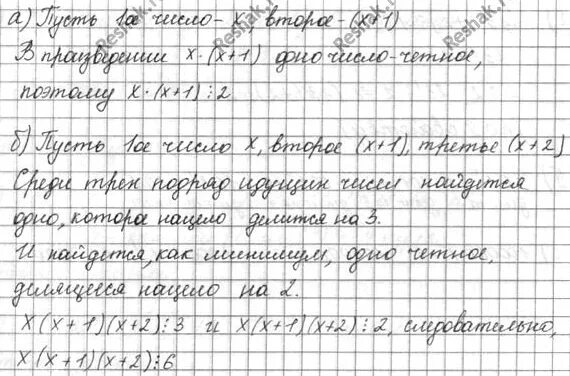 а) Пусть 1ое число - x, второе - (x+1)
В произведении x·(x+1) одно число - четное,
поэтому x·(x+1)⋮2
б) Пусть 1ое число x, второе (x+1), третье (x+2)
Среди трех подряд идущих чисел найдется
одно, которое нацело делится на 3.
И найдется, как минимум, одно четное,
делящееся нацело на 2.
x(x+1)(x+2)⋮3 и x(x+1)(x+2)⋮2, следовательно,
x(x+1)(x+2)⋮6
Reshak.ru
Reshak.ru
Reshak.ru